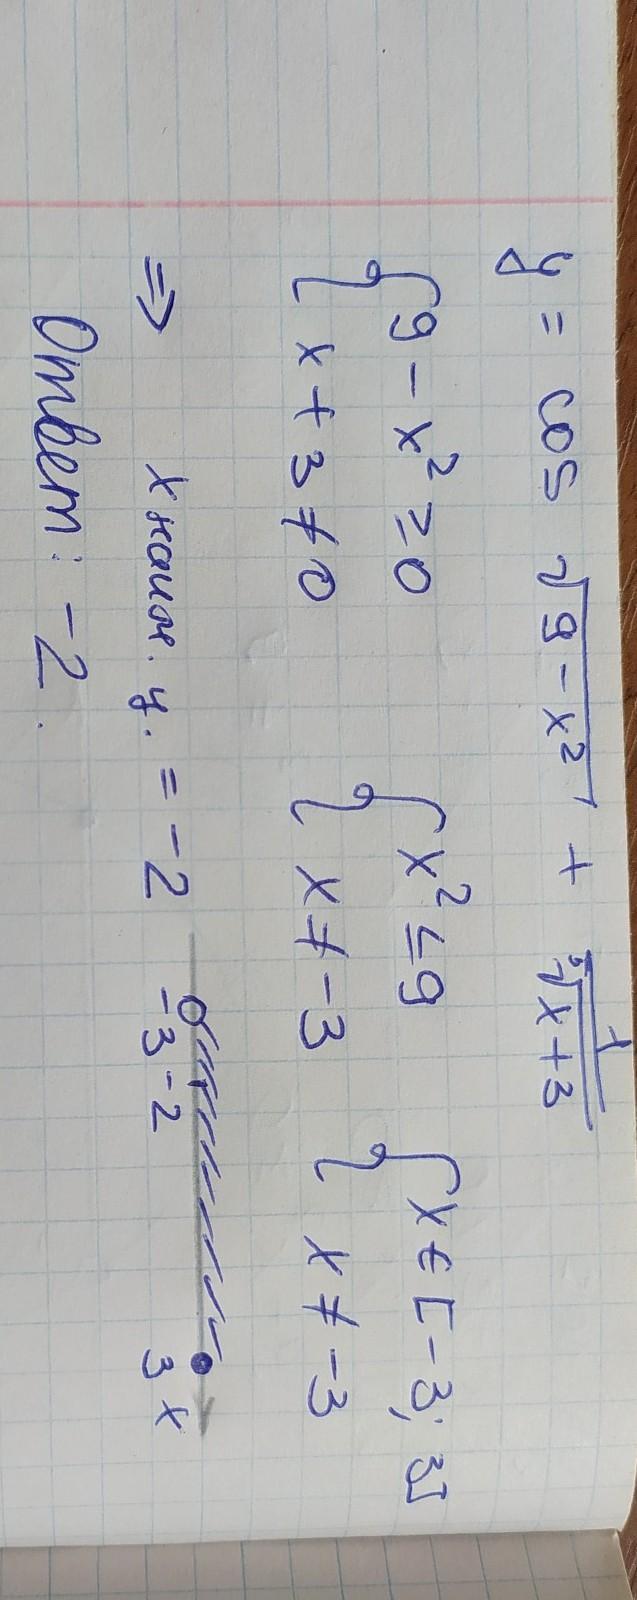 y = cos √(9 - x²) + 1/⁵√(x + 3)
{ 9 - x² ≥ 0 { x² ≤ 9 { x ∈ [-3; 3]
{ x + 3 ≠ 0 { x ≠ -3 { x ≠ -3
⇒ x наим. ц. = -2 -3 -2 3 x
Ответ: -2.